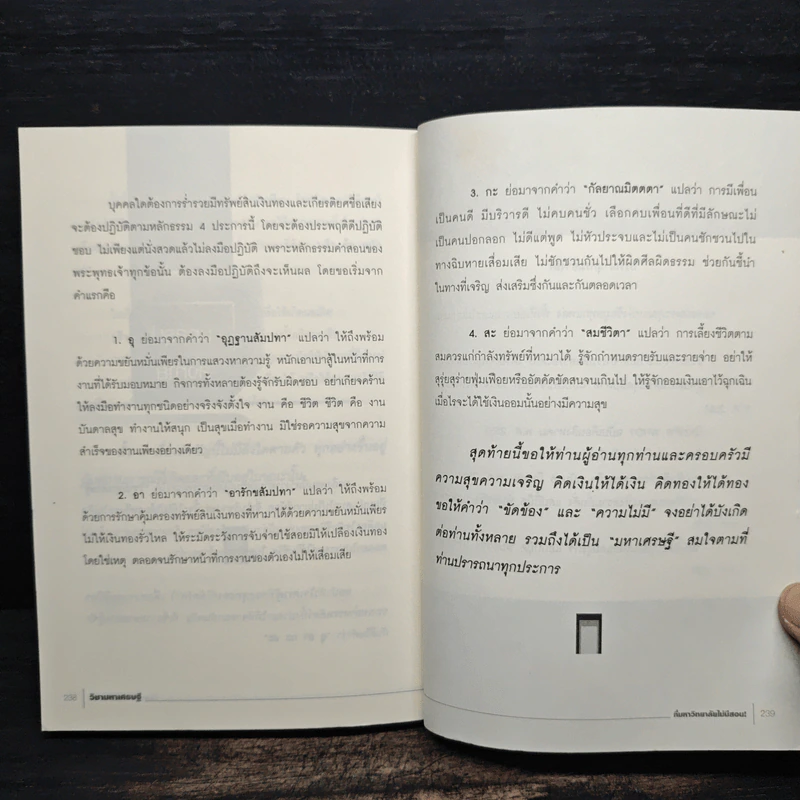 บุคคลใดต้องการร่ำรวยมีทรัพย์สินเงินทองและเกียรติยศชื่อเสียง
จะต้องปฏิบัติตามหลักธรรม 4 ประการนี้ โดยจะต้องประพฤติดีปฏิบัติ
ชอบ ไม่เพียงแต่นั่งสวดแล้วไม่ลงมือปฏิบัติ เพราะหลักธรรมคำสอนของ
พระพุทธเจ้าทุกข้อนั้น ต้องลงมือปฏิบัติถึงจะเห็นผล โดยขอเริ่มจาก
คำแรกคือ
1. อุ ย่อมาจากคำว่า "อุฏฐานสัมปทา" แปลว่า ให้ถึงพร้อม
ด้วยความขยันหมั่นเพียรในการแสวงหาความรู้ หนักเอาเบาสู้ในหน้าที่การ
งานที่ได้รับมอบหมาย กิจการทั้งหลายต้องรู้จักรับผิดชอบ อย่าเกียจคร้าน
ให้ลงมือทำงานทุกชนิดอย่างจริงจังตั้งใจ งาน คือ ชีวิต ชีวิต คือ งาน
บันดาลสุข ทำงานให้สนุก เป็นสุขเมื่อทำงาน มิใช่รอความสุขจากความ
สำเร็จของงานเพียงอย่างเดียว
2. อา ย่อมาจากคำว่า "อารักขสัมปทา" แปลว่า ให้ถึงพร้อม
ด้วยการรักษาคุ้มครองทรัพย์สินเงินทองที่หามาได้ด้วยความขยันหมั่นเพียร
ไม่ให้เงินทองรั่วไหล ให้ระมัดระวังการจับจ่ายใช้สอยมิให้เปลืองเงินทอง
โดยใช่เหตุ ตลอดจนรักษาหน้าที่การงานของตัวเองไม่ให้เสื่อมเสีย
238 วิชามหาเศรษฐี
3. กะ ย่อมาจากคำว่า "กัลยาณมิตตตา" แปลว่า การมีเพื่อน
เป็นคนดี มีบริวารดี ไม่คบคนชั่ว เลือกคบเพื่อนที่ดีที่มีลักษณะไม่
เป็นคนปอกลอก ไม่ดีแต่พูด ไม่หัวประจบและไม่เป็นคนชักชวนไปใน
ทางฉิบหายเสื่อมเสีย ไม่ชักชวนกันไปให้ผิดศีลผิดธรรม ช่วยกันชี้นำ
ในทางที่เจริญ ส่งเสริมซึ่งกันและกันตลอดเวลา
4. สะ ย่อมาจากคำว่า "สมชีวิตา" แปลว่า การเลี้ยงชีวิตตาม
สมควรแก่กำลังทรัพย์ที่หามาได้ รู้จักกำหนดรายรับและรายจ่าย อย่าให้
สุรุ่ยสุร่ายฟุ่มเฟือยหรืออัตคัดขัดสนจนเกินไป ให้รู้จักออมเงินเอาไว้ฉุกเฉิน
เมื่อไรจะได้ใช้เงินออมนั้นอย่างมีความสุข
สุดท้ายนี้ขอให้ท่านผู้อ่านทุกท่านและครอบครัวมี
ความสุขความเจริญ คิดเงินให้ได้เงิน คิดทองให้ได้ทอง
ขอให้คำว่า "ขัดข้อง" และ "ความไม่มี" จงอย่าได้บังเกิด
ต่อท่านทั้งหลาย รวมถึงได้เป็น "มหาเศรษฐี" สมใจตามที่
ท่านปรารถนาทุกประการ
ที่มหาวิทยาลัยไม่มีสอน! 239